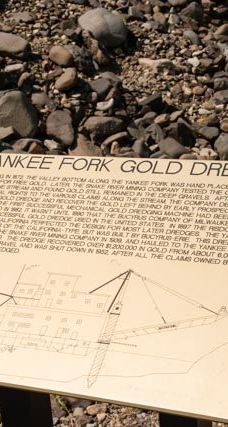 ANKEE FORK GOLD DRE
G IN 1872 THE VALLEY BOTTOM ALONG THE YANKEE FORK WAS HAND PLACE
FOR FREE GOLD. LATER, THE SNAKE RIVER MINING COMPANY TESTED THE
THE STREAM AND FOUND GOLD STILL REMAINED IN THE DEEP GRAVELS.
RIGHTS TO THE VARIOUS CLAIMS ALONG THE STREAM, THE COMPANY
GOLD DREDGE AND RECOVER THE GOLD LEFT BEHIND BY EARLY PROSPE
THE FIRST SUCCESSFUL MECHANICAL GOLD DREDGING MACHINE HAD BEEN
IN 1882, IT WASN'T UNTIL 1890 THAT THE BUCYRUS COMPANY OF MILWAUK
SUCCESSFUL GOLD DREDGE USED IN THE UNITED STATES. IN 1897 THE RISDON
THE DESIGN FOR MOST LATER DREDGES. THE
OF THE CALIFORNIA-TYPE, BUT WAS BUILT BY BUCYRUS ERIE. THIS DRE
THE SNAKE RIVER MINING COMPANY IN 1939, AND HAULED TO THE YANKEE
THE DREDGE RECOVERED OVER $1,200,000 IN GOLD FROM ABOUT 6,0
GRAVEL AND WAS SHUT DOWN IN 1952, AFTER ALL THE CLAIMS OWNED B
EDGED.